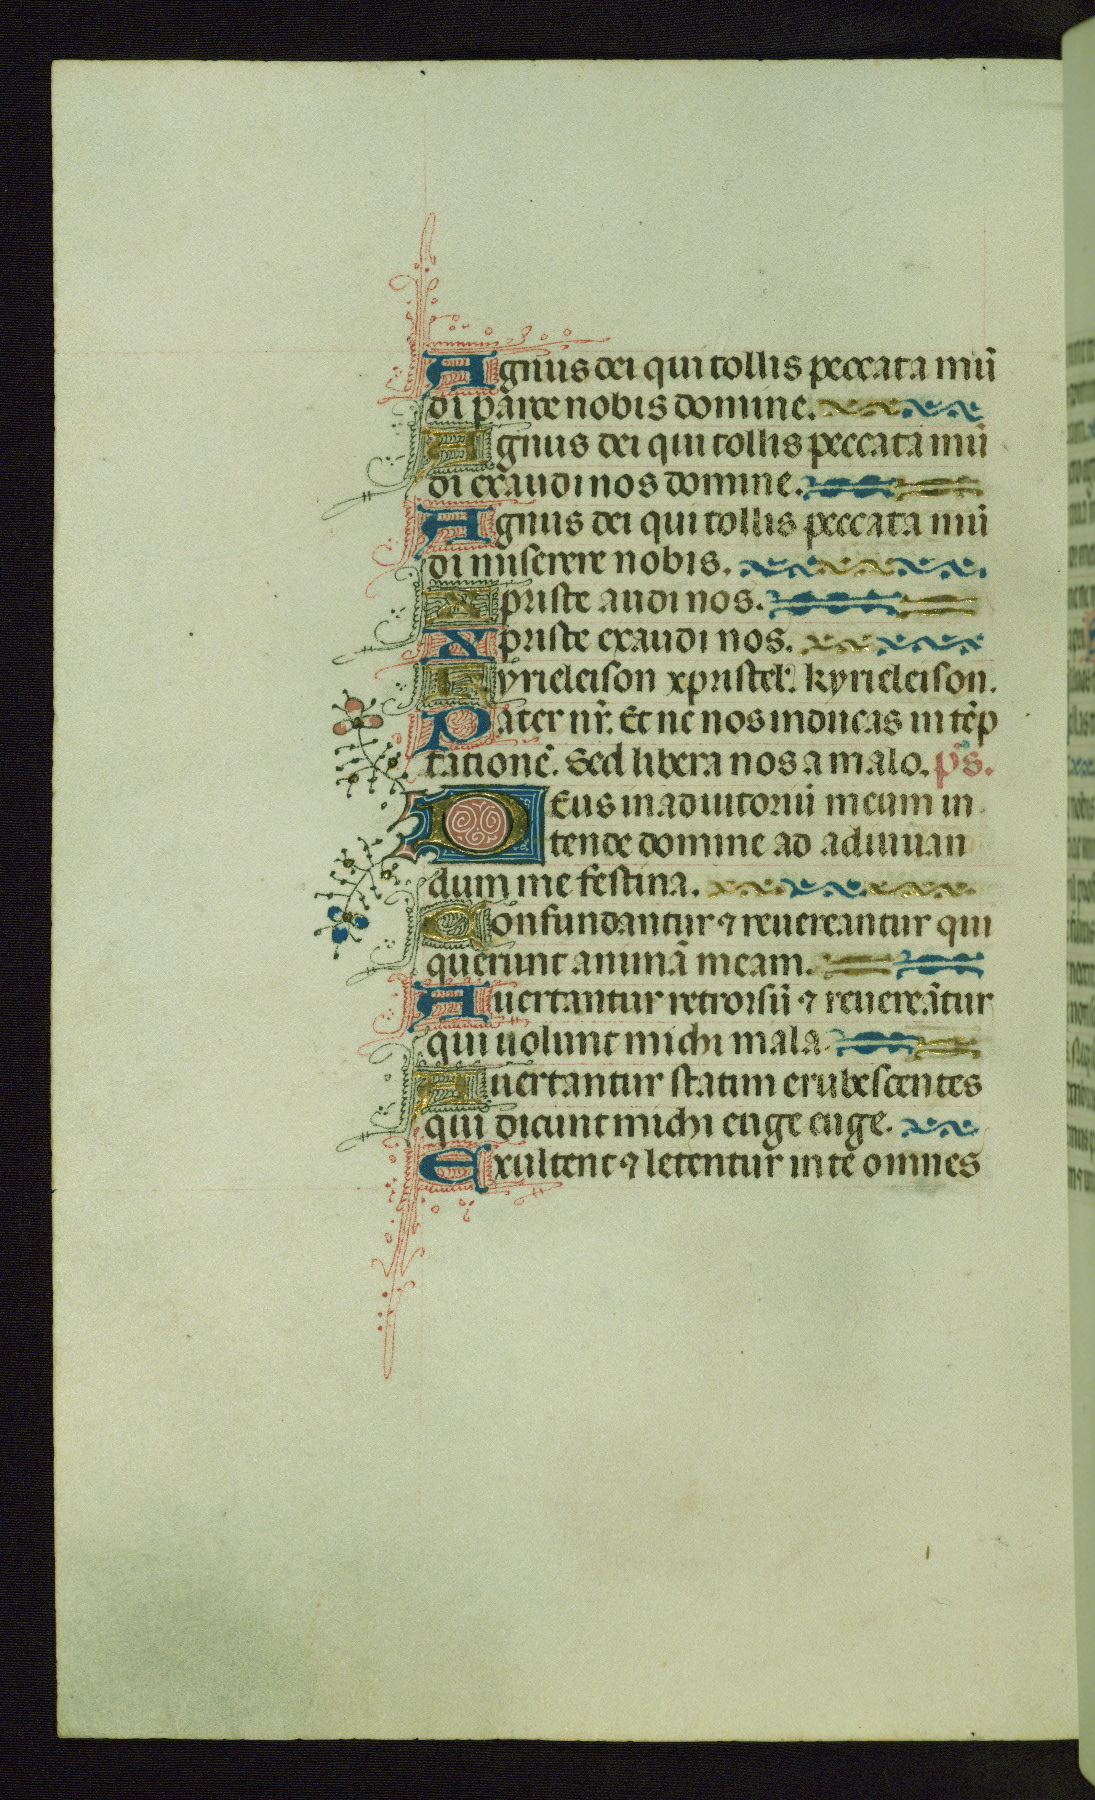 Agnus dei qui tollis peccata mū
di parce nobis domine.
Agnus dei qui tollis peccata mū
di exaudi nos domine.
Agnus dei qui tollis peccata mū
di miserere nobis.
Xpriste audi nos.
Xpriste exaudi nos.
Kyrieleison xpristel'. kyrieleison.
Pater nr̄. Et ne nos inducas in tēp
tationē. Sed libera nos a malo. ps̄.
DEus in adiutoriū meum in
tende domine ad adiuuan
dum me festina.
Confundantur ⁊ reuereantur qui
querunt animā meam.
Auertantur retrorsū ⁊ reuereātur
qui uolunt michi mala.
Auertantur statim erubescentes
qui dicunt michi euge euge.
Exultent ⁊ letentur in te omnes